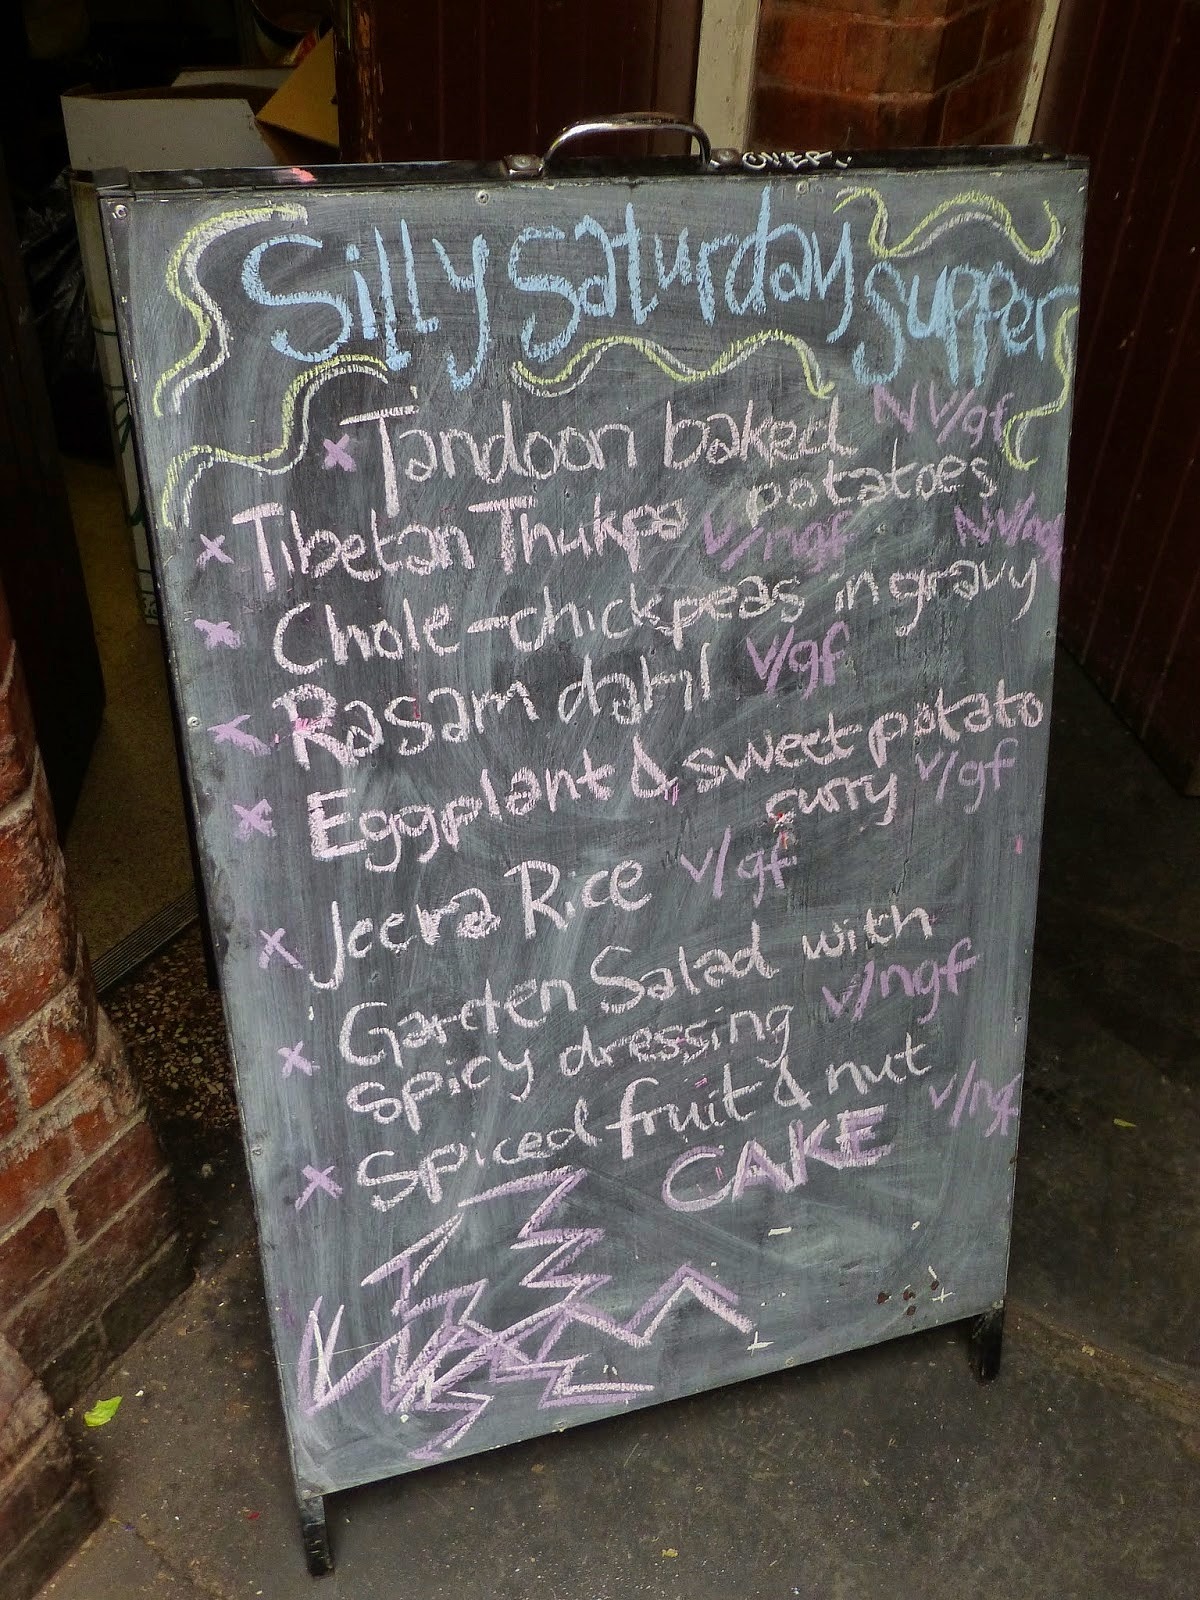 Silly Saturday Supper
x Tandoori baked NV/gf
potatoes
x Tibetan Thukpa V/ngf NV/ng
x Chole - chickpeas in gravy
x Rasam dahl v/gf
x Eggplant & sweet potato
curry v/gf
x Jeera Rice v/gf
x Garden Salad with
spicy dressing v/ngf
x Spiced fruit & nut v/ng
CAKE